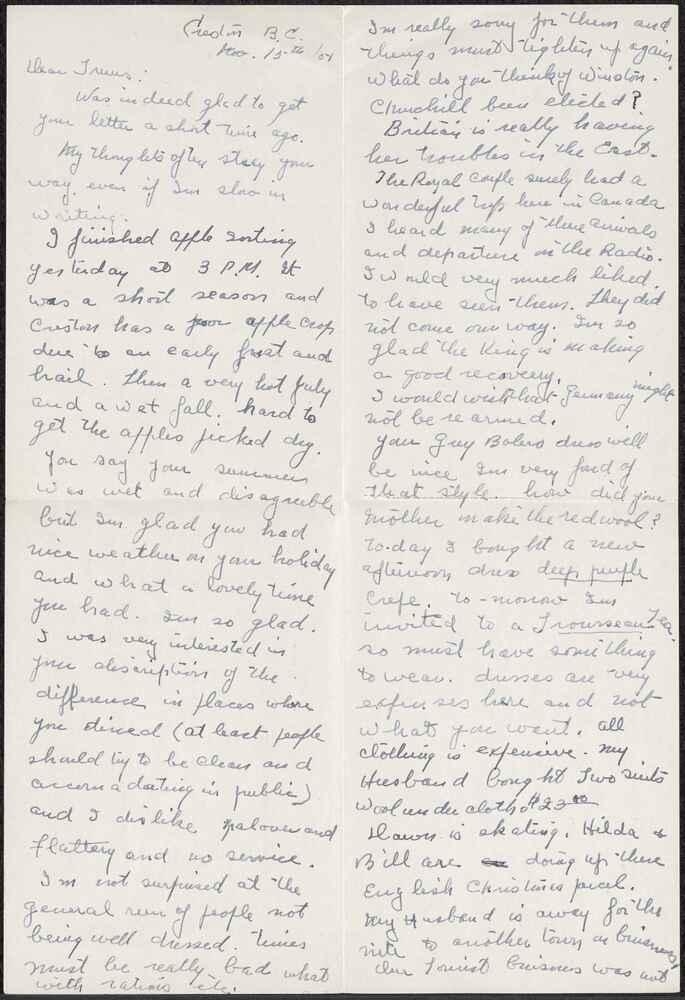 Creston B.C.
Nov. 15th /51
Dear Truus:
Was indeed glad to get
your letter a short time ago.
My thoughts often stray your
way, even if I'm slow in
writing.
I finished apple sorting
yesterday at 3 P.M. It
was a short season and
Creston has a poor apple crop
due to an early frost and
hail. Then a very hot July
and a wet fall. hard to
get the apples picked dry.
You say your summer
was wet and disagreeble
but I'm glad you had
nice weather on your holiday
and what a lovely time
you had. I'm so glad.
I was very interested in
your discription of the
difference in places where
you dined (at least people
should try to be clean and
accomadating in public)
and I dislike palover and
flattery and no service.
I'm not surprised at the
general run of people not
being well dressed. Times
must be really bad what
with rations etc.
I'm really sorry for them and
things must tighten up again
What do you think of Winston
Churchill been elected?
Britian is really having
her troubles in the East.
The Royal Couple surely had a
wonderful trip here in Canada
I heard many of there arrivals
and departure on the Radio.
I would very much liked
to have seen them. They did
not come our way. I'm so
glad the King is making
a good recovery.
I would wish that Germany might
not be rearmed.
Your Grey Bolero dress will
be nice I'm very fond of
that style. how did your
mother make the red wool?
To-day I bought a new
afternoon dress deep purple
Crepe. To-morrow I'm
invited to a Trousseau Tea
so must have something
to wear. dresses are very
expenses here and not
what you want. all
clothing is expensive. My
Husband bought Two suits
wool under cloths $23.00
is skating. Hilda &
Bill are doing up there
English Christmas parcel.
My Husband is away for the
nite to another town on buisness
Our Tourist buisness was not